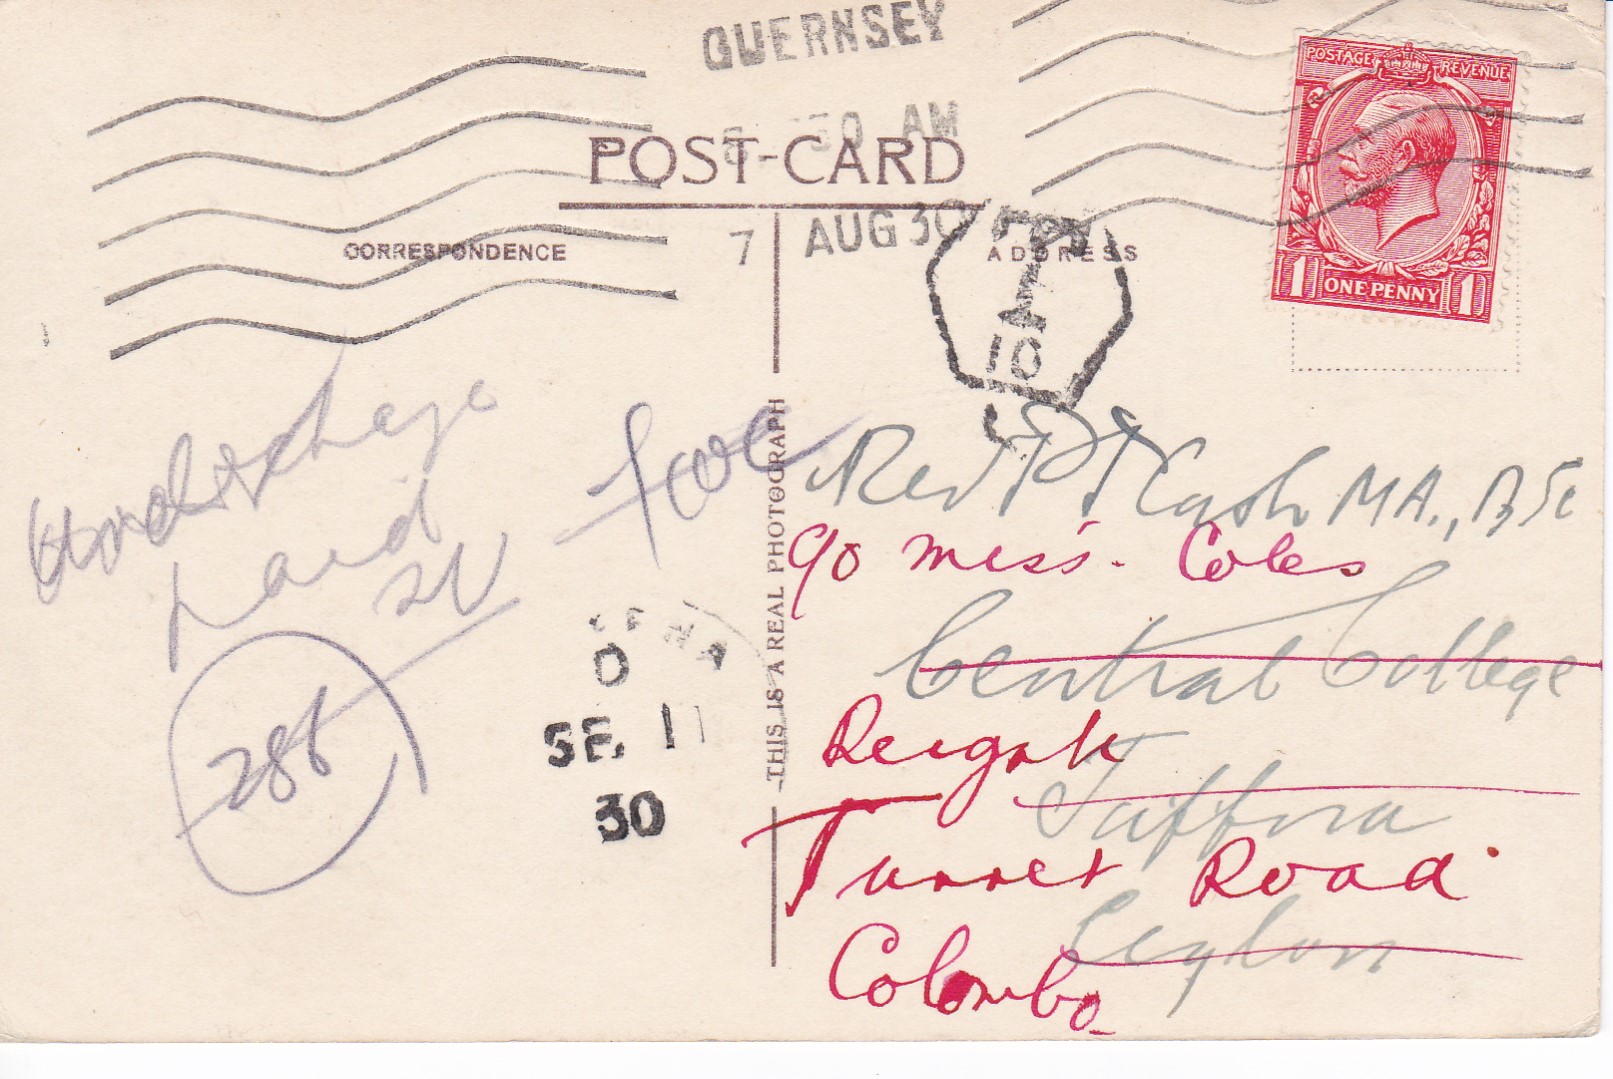 GUERNSEY
30 AM
7 AUG 30
POST-CARD
CORRESPONDENCE
ADDRESS
POSTAGE REVENUE
1 ONE PENNY 1
T
10
THIS IS A REAL PHOTOGRAPH
Rev P T Cash MA., BSc
c/o Miss. Coles
Central College
Reigate
Jaffna
Turret Road
Ceylon
Colombo
paid
286
SE 11
30